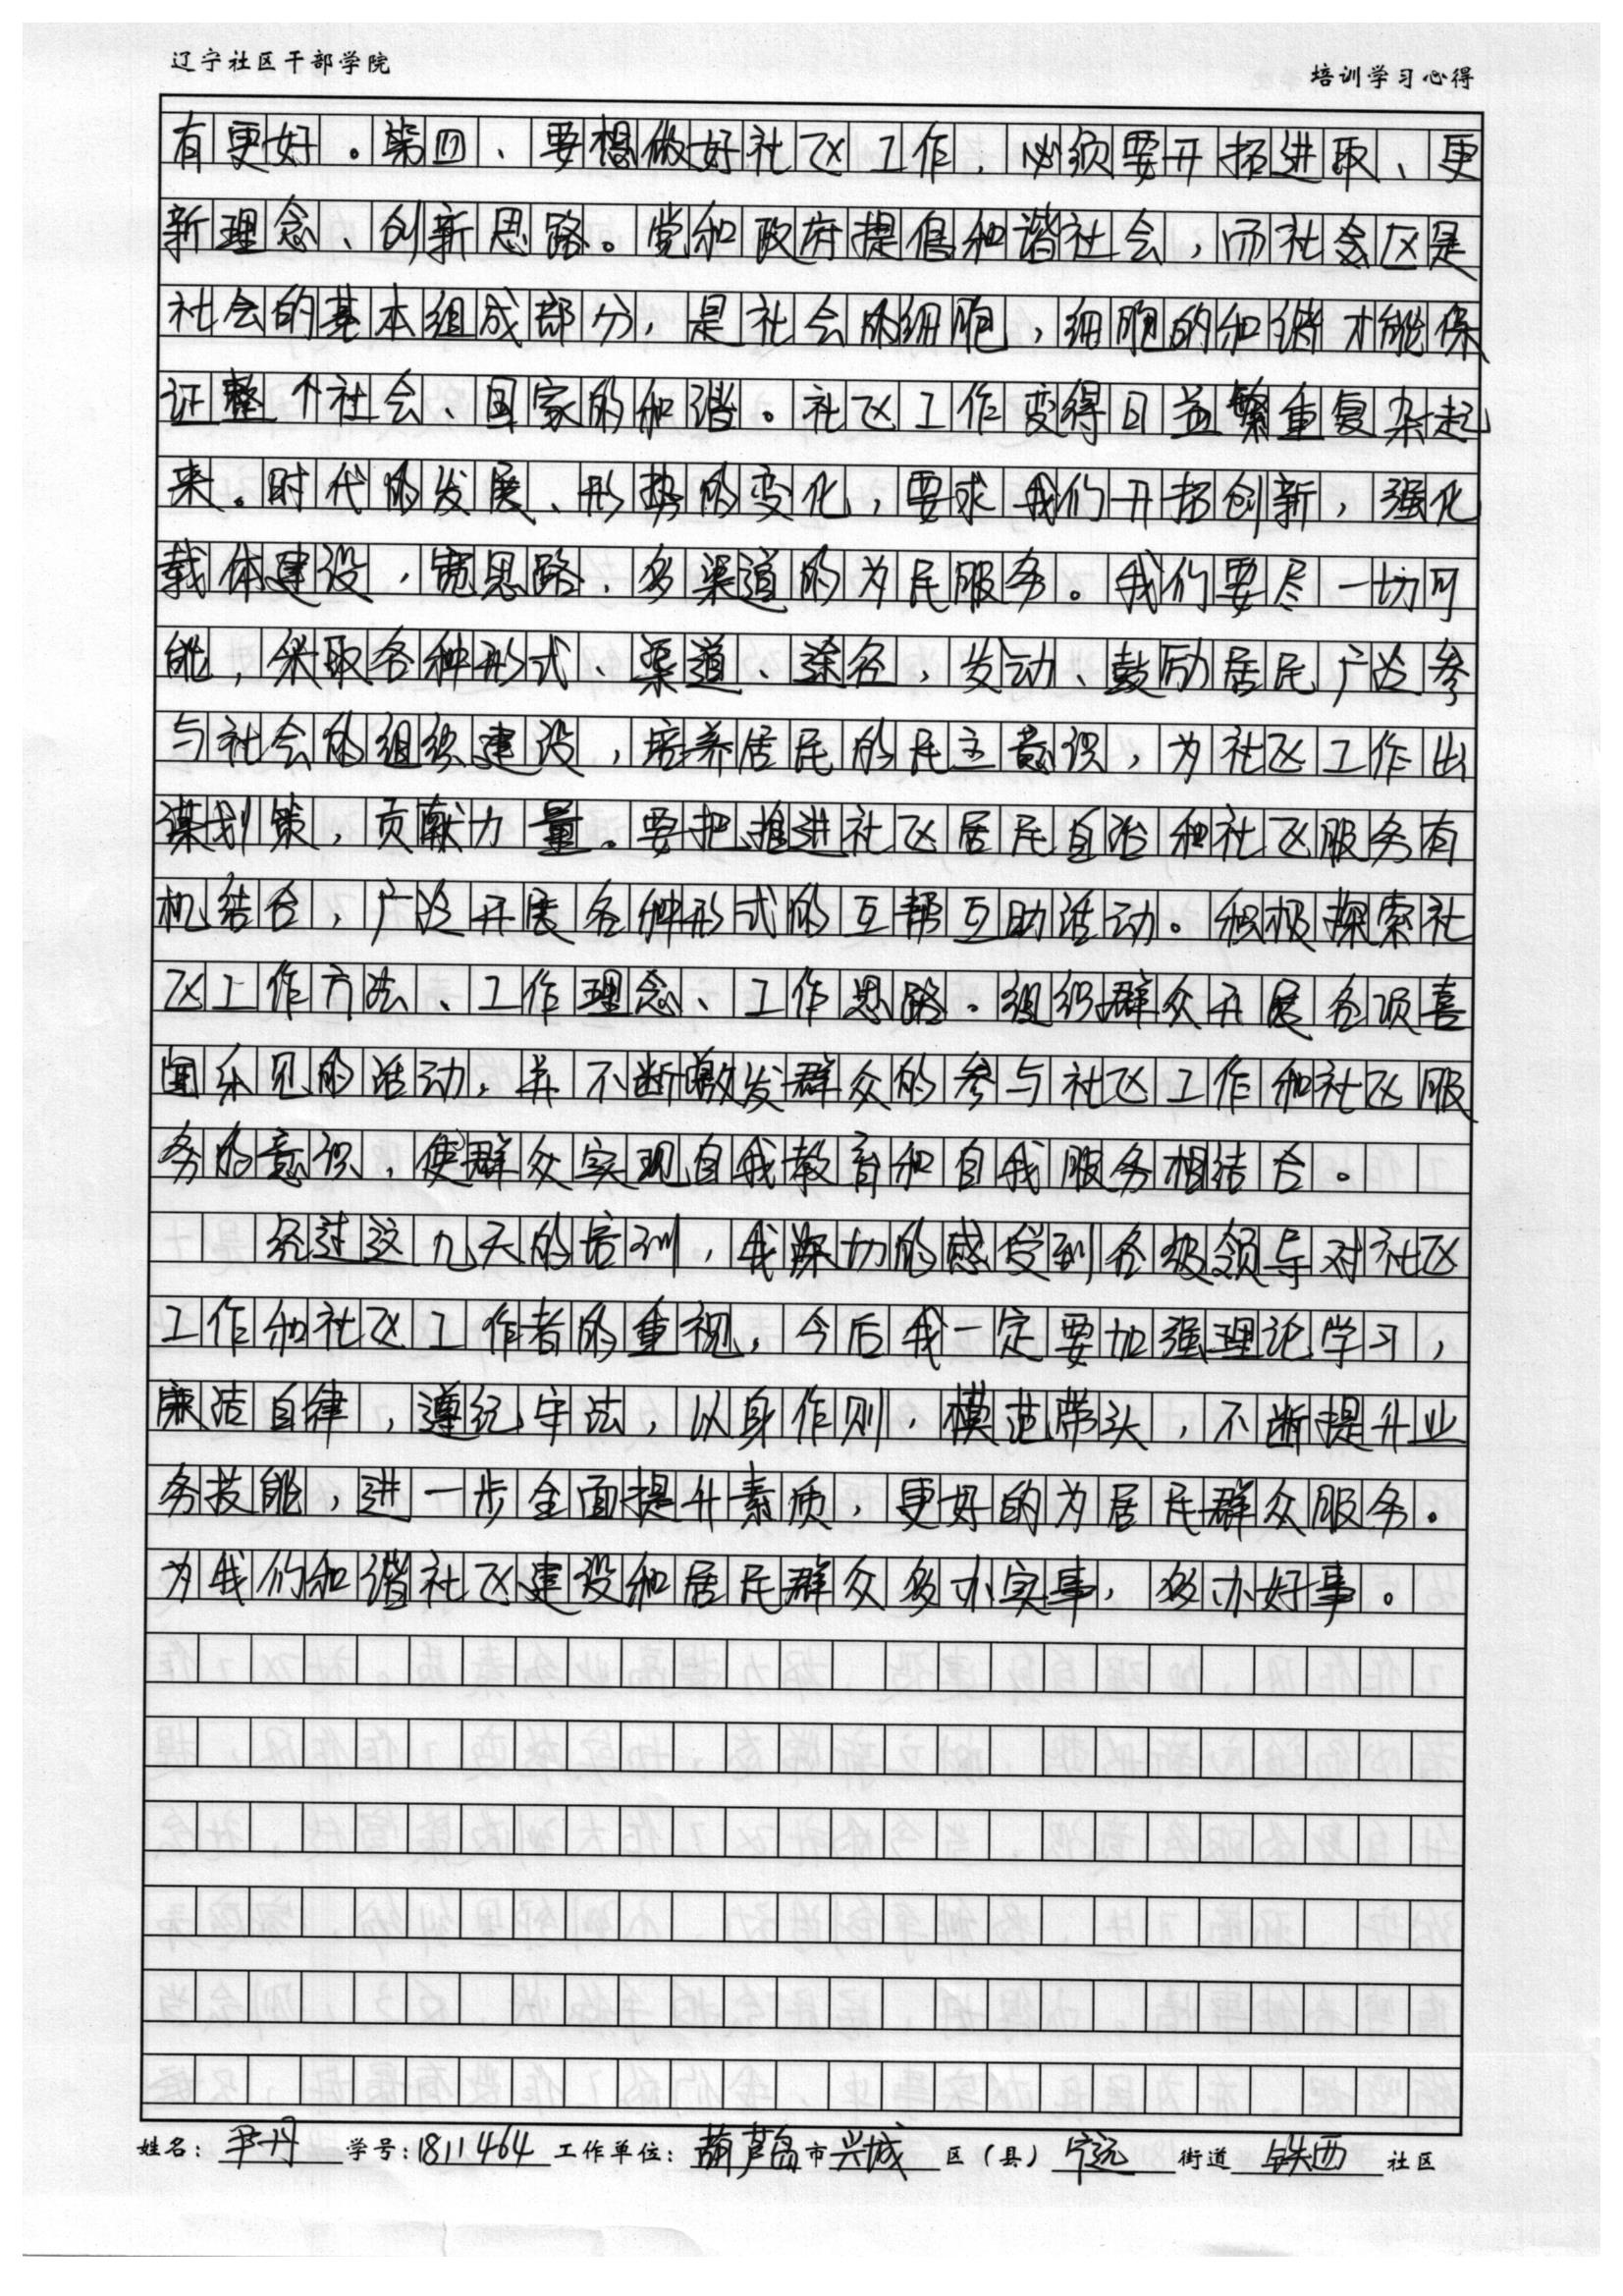 辽宁社区干部学院
培训学习心得
有更好。第四、要想做好社区工作，必须要开拓进取、更
新理念、创新思路。党和政府提倡和谐社会，而社会区是
社会的基本组成部分，是社会的细胞，细胞的和谐才能保
证整个社会、国家的和谐。社区工作变得日益繁重复杂起
来。时代的发展、形势的变化，要求我们开拓创新，强化
载体建设，宽思路，多渠道的为民服务。我们要尽一切可
能，采取各种形式、渠道、途径，发动、鼓励居民广泛参
与社会的组织建设，培养居民的民主意识，为社区工作出
谋划策，贡献力量。要把推进社区居民自治和社区服务有
机结合，广泛开展各种形式的互帮互助活动。积极探索社
区工作方法、工作理念、工作思路。组织群众开展各项喜
闻乐见的活动，并不断激发群众的参与社区工作和社区服
务的意识，使群众实现自我教育和自我服务相结合。
经过这九天的培训，我深切的感受到各级领导对社区
工作和社区工作者的重视，今后我一定要加强理论学习，
廉洁自律，遵纪守法，以身作则，模范带头，不断提升业
务技能，进一步全面提升素质，更好的为居民群众服务。
为我们和谐社区建设和居民群众多办实事，多办好事。
姓名：尹丹 学号：1811464 工作单位：葫芦岛市兴城区（县）宁远街道铁西社区